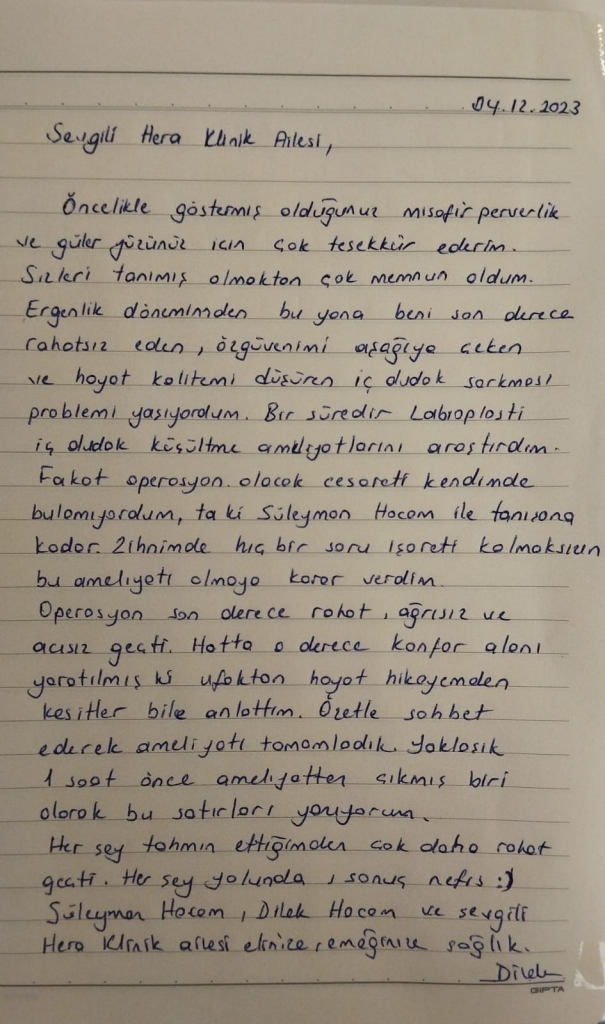 04.12.2023
Sevgili Hera Klinik Ailesi,
Öncelikle göstermiş olduğunuz misafirperverlik
ve güler yüzünüz için çok teşekkür ederim.
Sizleri tanımış olmaktan çok memnun oldum.
Ergenlik dönemimden bu yana beni son derece
rahatsız eden, özgüvenimi aşağıya çeken
ve hayat kalitemi düşüren iç dudak sarkması
problemi yaşıyordum. Bir süredir Labioplasti
iç dudak küçültme ameliyatlarını araştırdım.
Fakat operasyon olacak cesareti kendimde
bulamıyordum, ta ki Süleyman Hocam ile tanışana
kadar. Zihnimde hiç bir soru işareti kalmaksızın
bu ameliyatı olmaya karar verdim.
Operasyon son derece rahat, ağrısız ve
acısız geçti. Hatta o derece konfor alanı
yaratılmış ki ufaktan hayat hikayemden
kesitler bile anlattım. Özetle sohbet
ederek ameliyatı tamamladık. Yaklaşık
1 saat önce ameliyattan çıkmış biri
olarak bu satırları yazıyorum.
Her şey tahmin ettiğimden çok daha rahat
geçti. Her şey yolunda, sonuç nefis :)
Süleyman Hocam, Dilek Hocam ve sevgili
Hera Klinik ailesi elinize, emeğinize sağlık.
Dilek
GIPTA